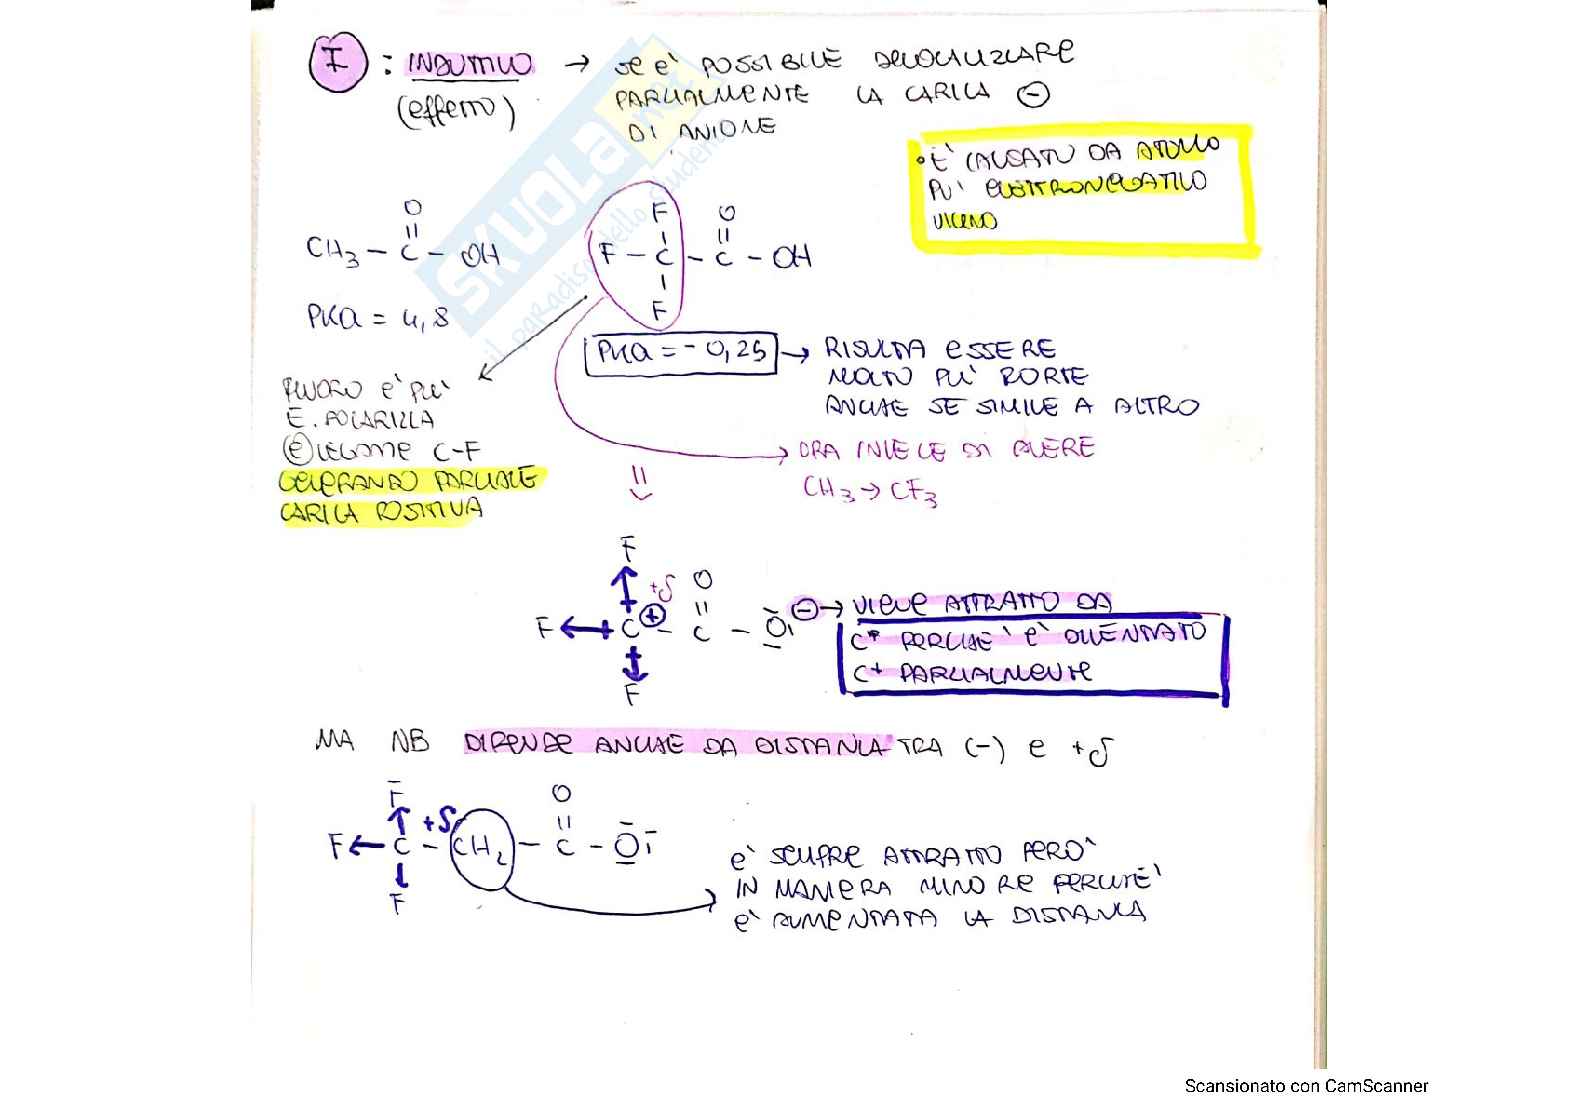 I : INDUTTIVO → SE E' POSSIBILE DELOCALIZZARE
(effetto) PARZIALMENTE LA CARICA ⊖
DI ANIONE
• E' CAUSATO DA ATOMO
PIU' ELETTRONEGATIVO
VICINO
O F O
|| | ||
CH3 – C – OH F – C – C – OH
|
F
PKa = 4,8
PKa = - 0,25 → RISULTA ESSERE
MOLTO PIU' FORTE
ANCHE SE SIMILE A ALTRO
FLUORO E' PIU'
E. POLARIZZA
IL LEGAME C-F
GENERANDO PARZIALE
CARICA POSITIVA
ORA INVECE DI AVERE
CH3 → CF3
F
+δ O
||
F ← C ⊕ – C – O ⊖ → VIENE ATTRATTO DA
C* PERCHE' E' DIVENTATO
C+ PARZIALMENTE
F
MA NB DIPENDE ANCHE DA DISTANZA TRA (-) e +δ
F O
+δ ||
F ← C – CH2 – C – O-
F
E' SEMPRE ATTRATTO PERO'
IN MANIERA MINORE PERCHE'
E' AUMENTATA LA DISTANZA
SKUOLA.net
il paradiso dello studente
Scansionato con CamScanner